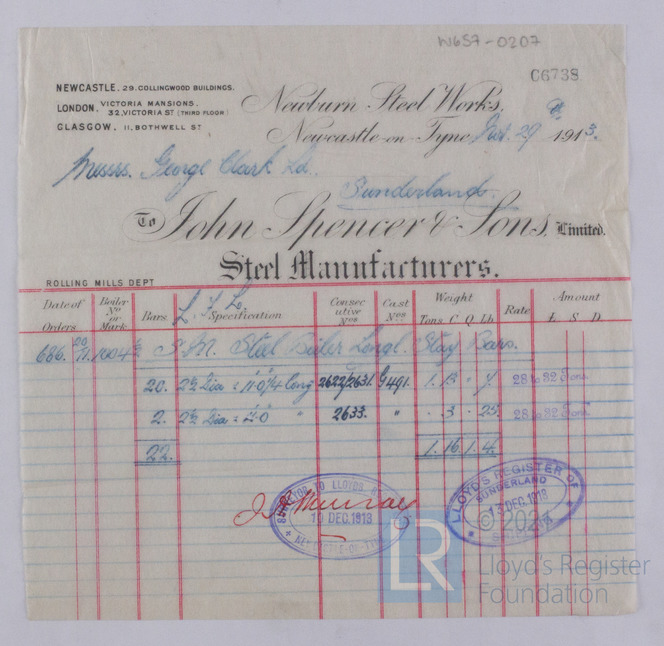 W657-0207
C6738
NEWCASTLE. 29. COLLINGWOOD BUILDINGS.
LONDON. VICTORIA MANSIONS.
32, VICTORIA ST (THIRD FLOOR)
GLASGOW. 11, BOTHWELL ST
Newburn Steel Works,
Newcastle-on-Tyne, 29 1913.
Messrs. George Clark Ld.
Sunderland.
To John Spencer & Sons, Limited.
Steel Manufacturers.
ROLLING MILLS DEPT
Date of Orders Boiler No or Mark. Bars. Specification Consecutive Nos Cast Nos Weight Rate Amount
Tons. C Q. Lb. £ S D.
686. S.M. Steel Boiler Longl. Stay Bars.
20. Long 2622/2631. 28 to 32 Tons
2. 2633. " 3 28 to 32 Tons
22. 1. 16. 1. 4.
SURVEYOR TO LLOYDS
10 DEC. 1913
NEWCASTLE-ON-TYNE
J. Murray
LLOYD'S REGISTER OF
SUNDERLAND
13 DEC. 1913
LR
Lloyd's Register
Foundation